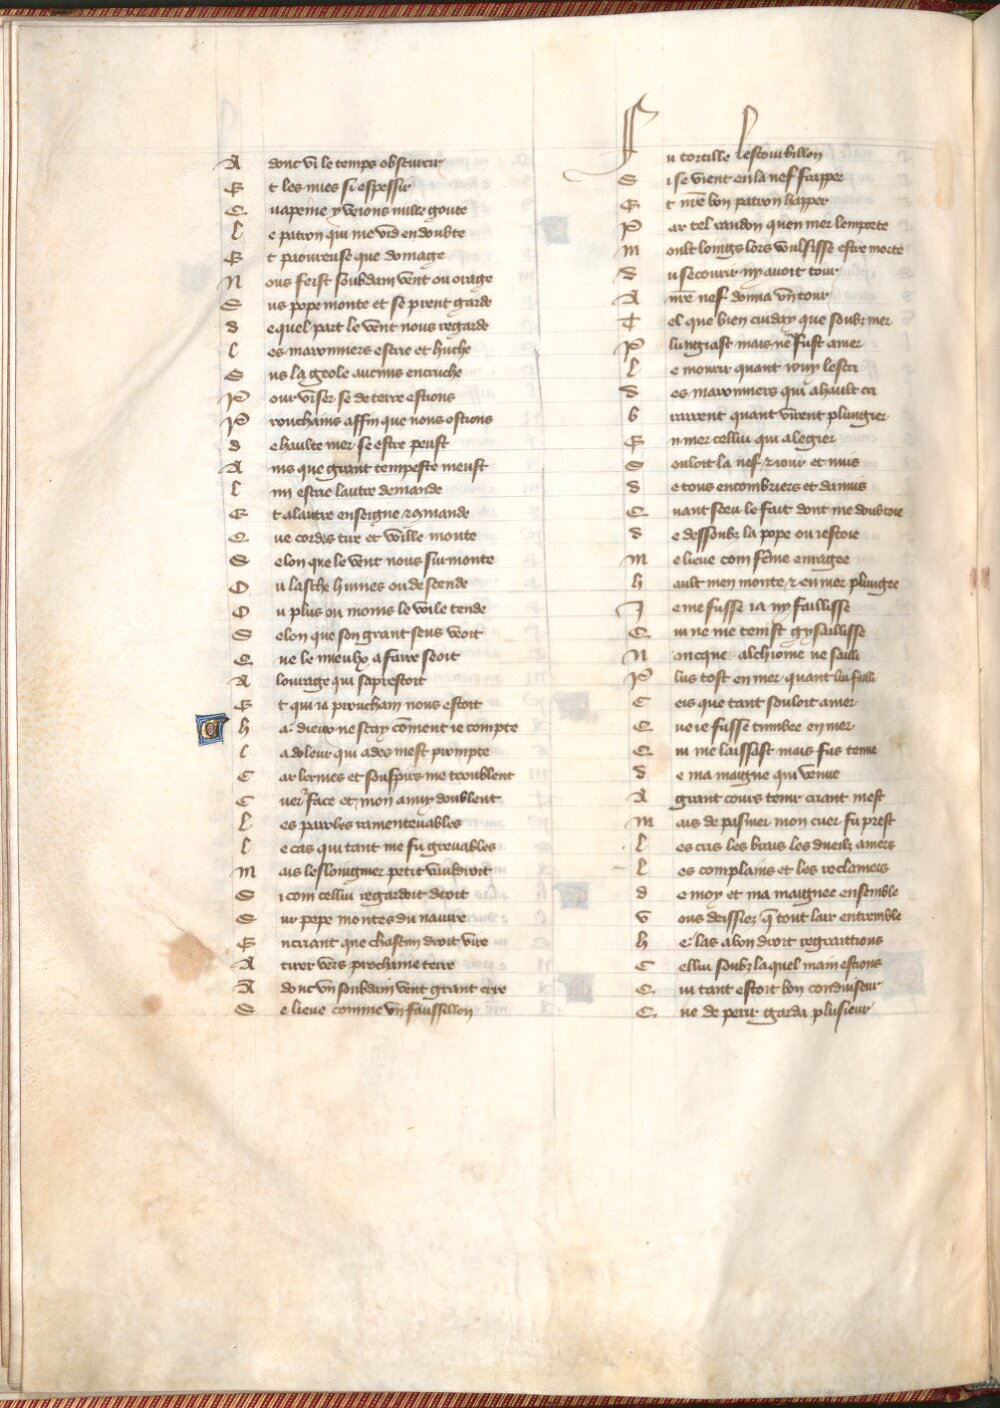 A donc vi le temps obscurcir
E t les nues si espessir
Q uapeine y veions nulle goute
L e patron qui me vid en doubte
E t paoureuse que domage
N ous feist soubdain vent ou orage
S us pope monte et se prent garde
d equel part le vent nous regarde
l es maronniers estrie et huche
S us la geole aucuns encruche
P our viser se de terre estions
P rouchains affin que nous ostions
d e haulte mer se estre peust
A ins que grant tempeste meust
l un estrie lautre demande
E t alautre enseigne & comande
Q ue cordes tire et voille monte
S elon que le vent nous surmonte
O u lasche hunes ou destende
O u plus ou moins le voile tende
S elon que son grant sens veoit
Q ue le mieulx a faire seoit
A lourage qui saprestoit
E t qui ia prouchain nous estoit
h a dieux ne scay coment ie compte
l a doleur qui ades mest prompte
C ar lermes et souspirs me troublent
C uer face et mon anuy doublent
L es paroles ramentevables
l e cas qui tant me fu grevables
m ais leslongnier petit vauldroit
S i com cellui regardoit droit
S ur pope montes du navire
E n criant que chascun droit vire
A tirer vers prochaine terre
A donc un soubdain vent grant erre
S e lieve comme un faussillon
F u tortille lestourbillon
S i se vient en la nef frapper
E t nre bon patron happer
P ar tel randon quen mer lemporte
m oult loings lors voulsisse estre morte
d u secourir ny avoit tour
A nre nef donna un tour
T el que bien cuiday que soubz mer
P lungiast mais ne fust amer
l e mourir quant iouy lescri
d es maronniers qui a hault cri
b rairent quant virent plungier
E n mer cellui qui alegier
S ouloit la nef & iour et nuis
d e tous encombriers et danuis
Q uant sceu le fait dont me doubtoie
d e dessoubz la pope ou iestoie
m e lieve com feme enragee
h ault men monte & en mer plungee
J e me fusse ia ny faillisse
Q ui ne me tenist gy saillisse
N oncque alchione ne sailli
P lus tost en mer quant lui failli
C eis que tant souloit amer
Q ue ie fusse tumbee en mer
Q ui me laissast mais fus tenue
d e ma maignee qui venue
A grant cours tenir criant mest
m ais de pasmer mon cuer fu prest
l es cris les brais les dueilz amers
l es complains et les reclamers
d e moy et ma maignee ensemble
V ous deissiez q tout lair entremble
h e las a bon droit regraittions
C ellui soubz laquel main estions
Q ui tant estoit bon conduiseur
Q ue de peril garda plusieur